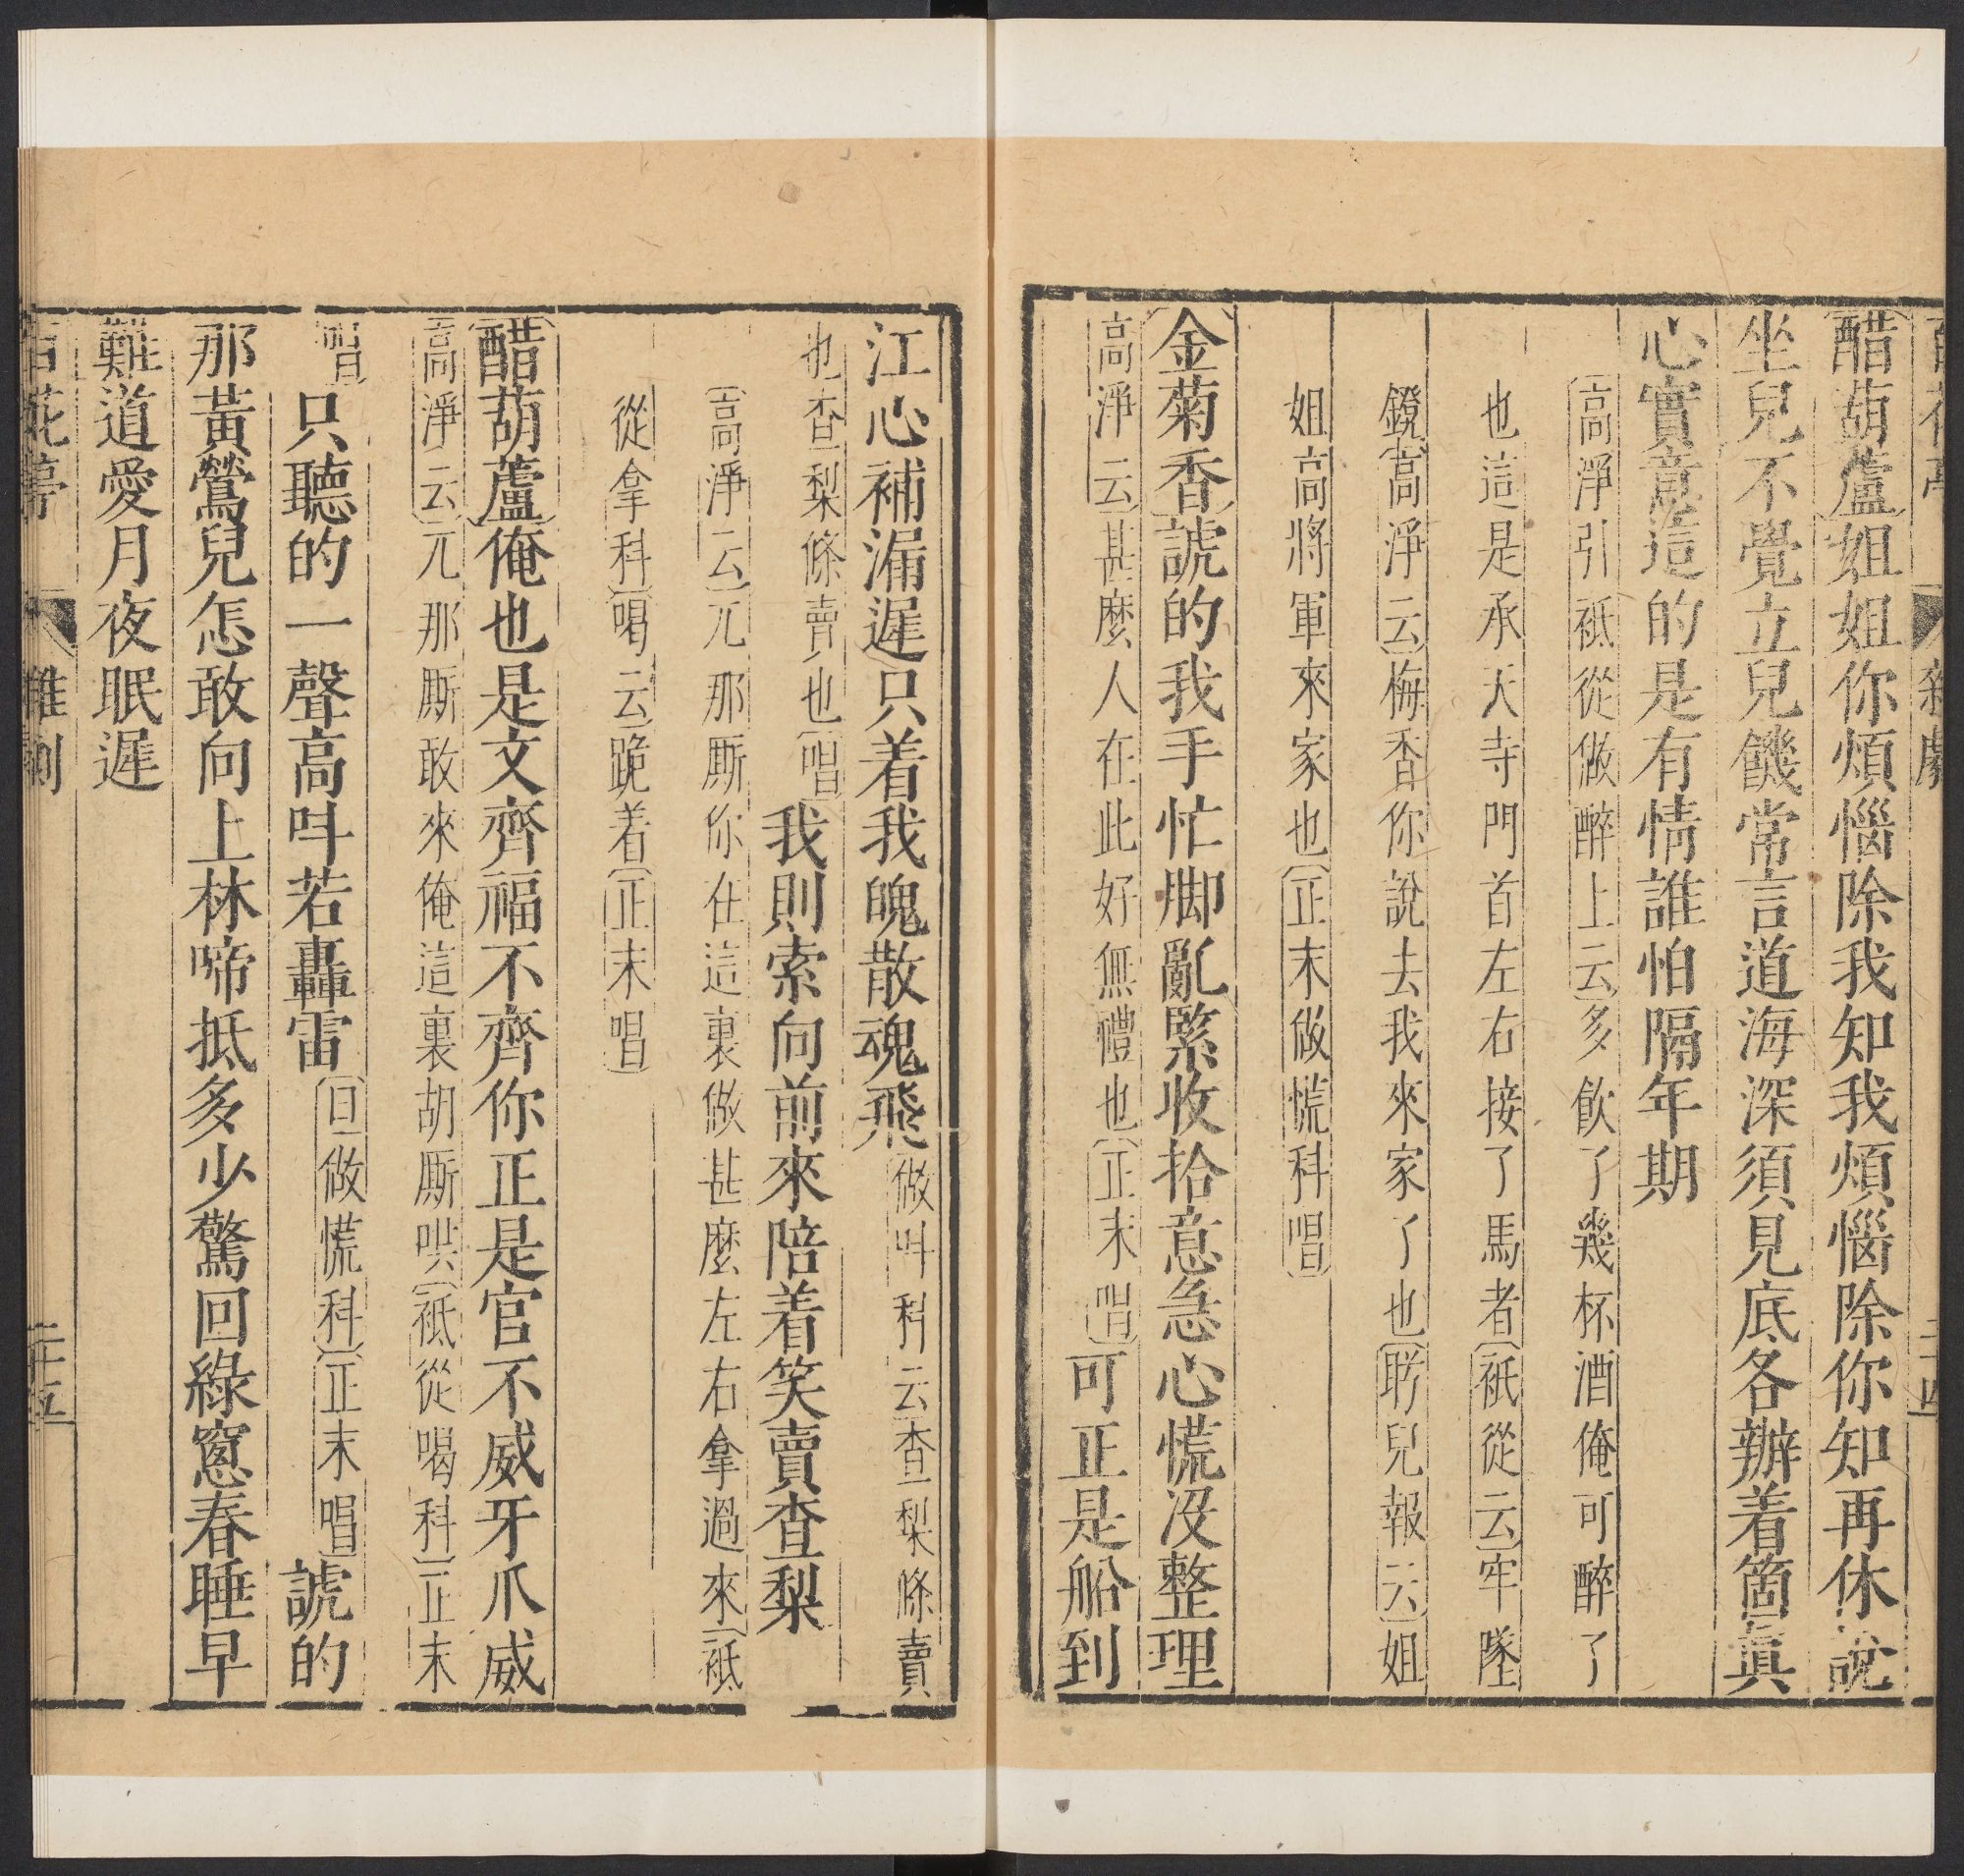 醋葫蘆姐姐你煩惱除我知我煩惱除你知再休說
坐兒不覺立兒饑常言道海深須見底各辦着箇真
心實意這的是有情誰怕隔年期
高淨引祗從做醉上云多飲了幾杯酒俺可醉了
也這是承天寺門首左右接了馬者祗從云牢墜
鐙高淨云梅香你說去我來家了也盼兒報云姐
姐高將軍來家也正末做慌科唱
金菊香諕的我手忙脚亂緊收拾意急心慌没整理
高淨云甚麼人在此好無禮也正末唱可正是船到
江心補漏遲只着我魄散魂飛做呌科云查梨條賣
也查梨條賣也唱我則索向前來陪着笑賣查梨
高淨云兀那厮你在這裏做甚麼左右拿過來祗
從拿科喝云跪着正末唱
醋葫蘆俺也是文齊福不齊你正是官不威牙爪威
高淨云兀那厮敢來俺這裏胡厮哄祗從喝科正末
唱只聽的一聲高呌若轟雷旦做慌科正末唱諕的
那黃鶯兒怎敢向上林啼抵多少驚回綠窻春睡早
難道愛月夜眠遲
百花亭 雜劇 二十五